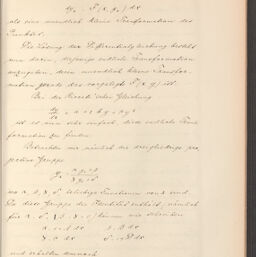 dy = F(x, y) dx
als eine unendlich kleine Transformation des
Punktes.
Die Lösung der Differentialgleichung besteht
nun darin, diejenige endliche Transformation
anzugeben, deren unendlich kleine Transfor-
mation gerade das vorgelegte F(x y) ist.
Bei der Riccati'schen Gleichung
dy/dx = a + 2by + cy²
ist es nun sehr einfach, diese endliche Trans-
formation zu finden.
Betrachten wir nämlich die dreigliedrige pro-
jective Gruppe
wo α, β, γ, δ beliebige Funktionen von x sind.
Da diese Gruppe die Identität enthält, nämlich
für können wir schreiben
und erhalten demnach